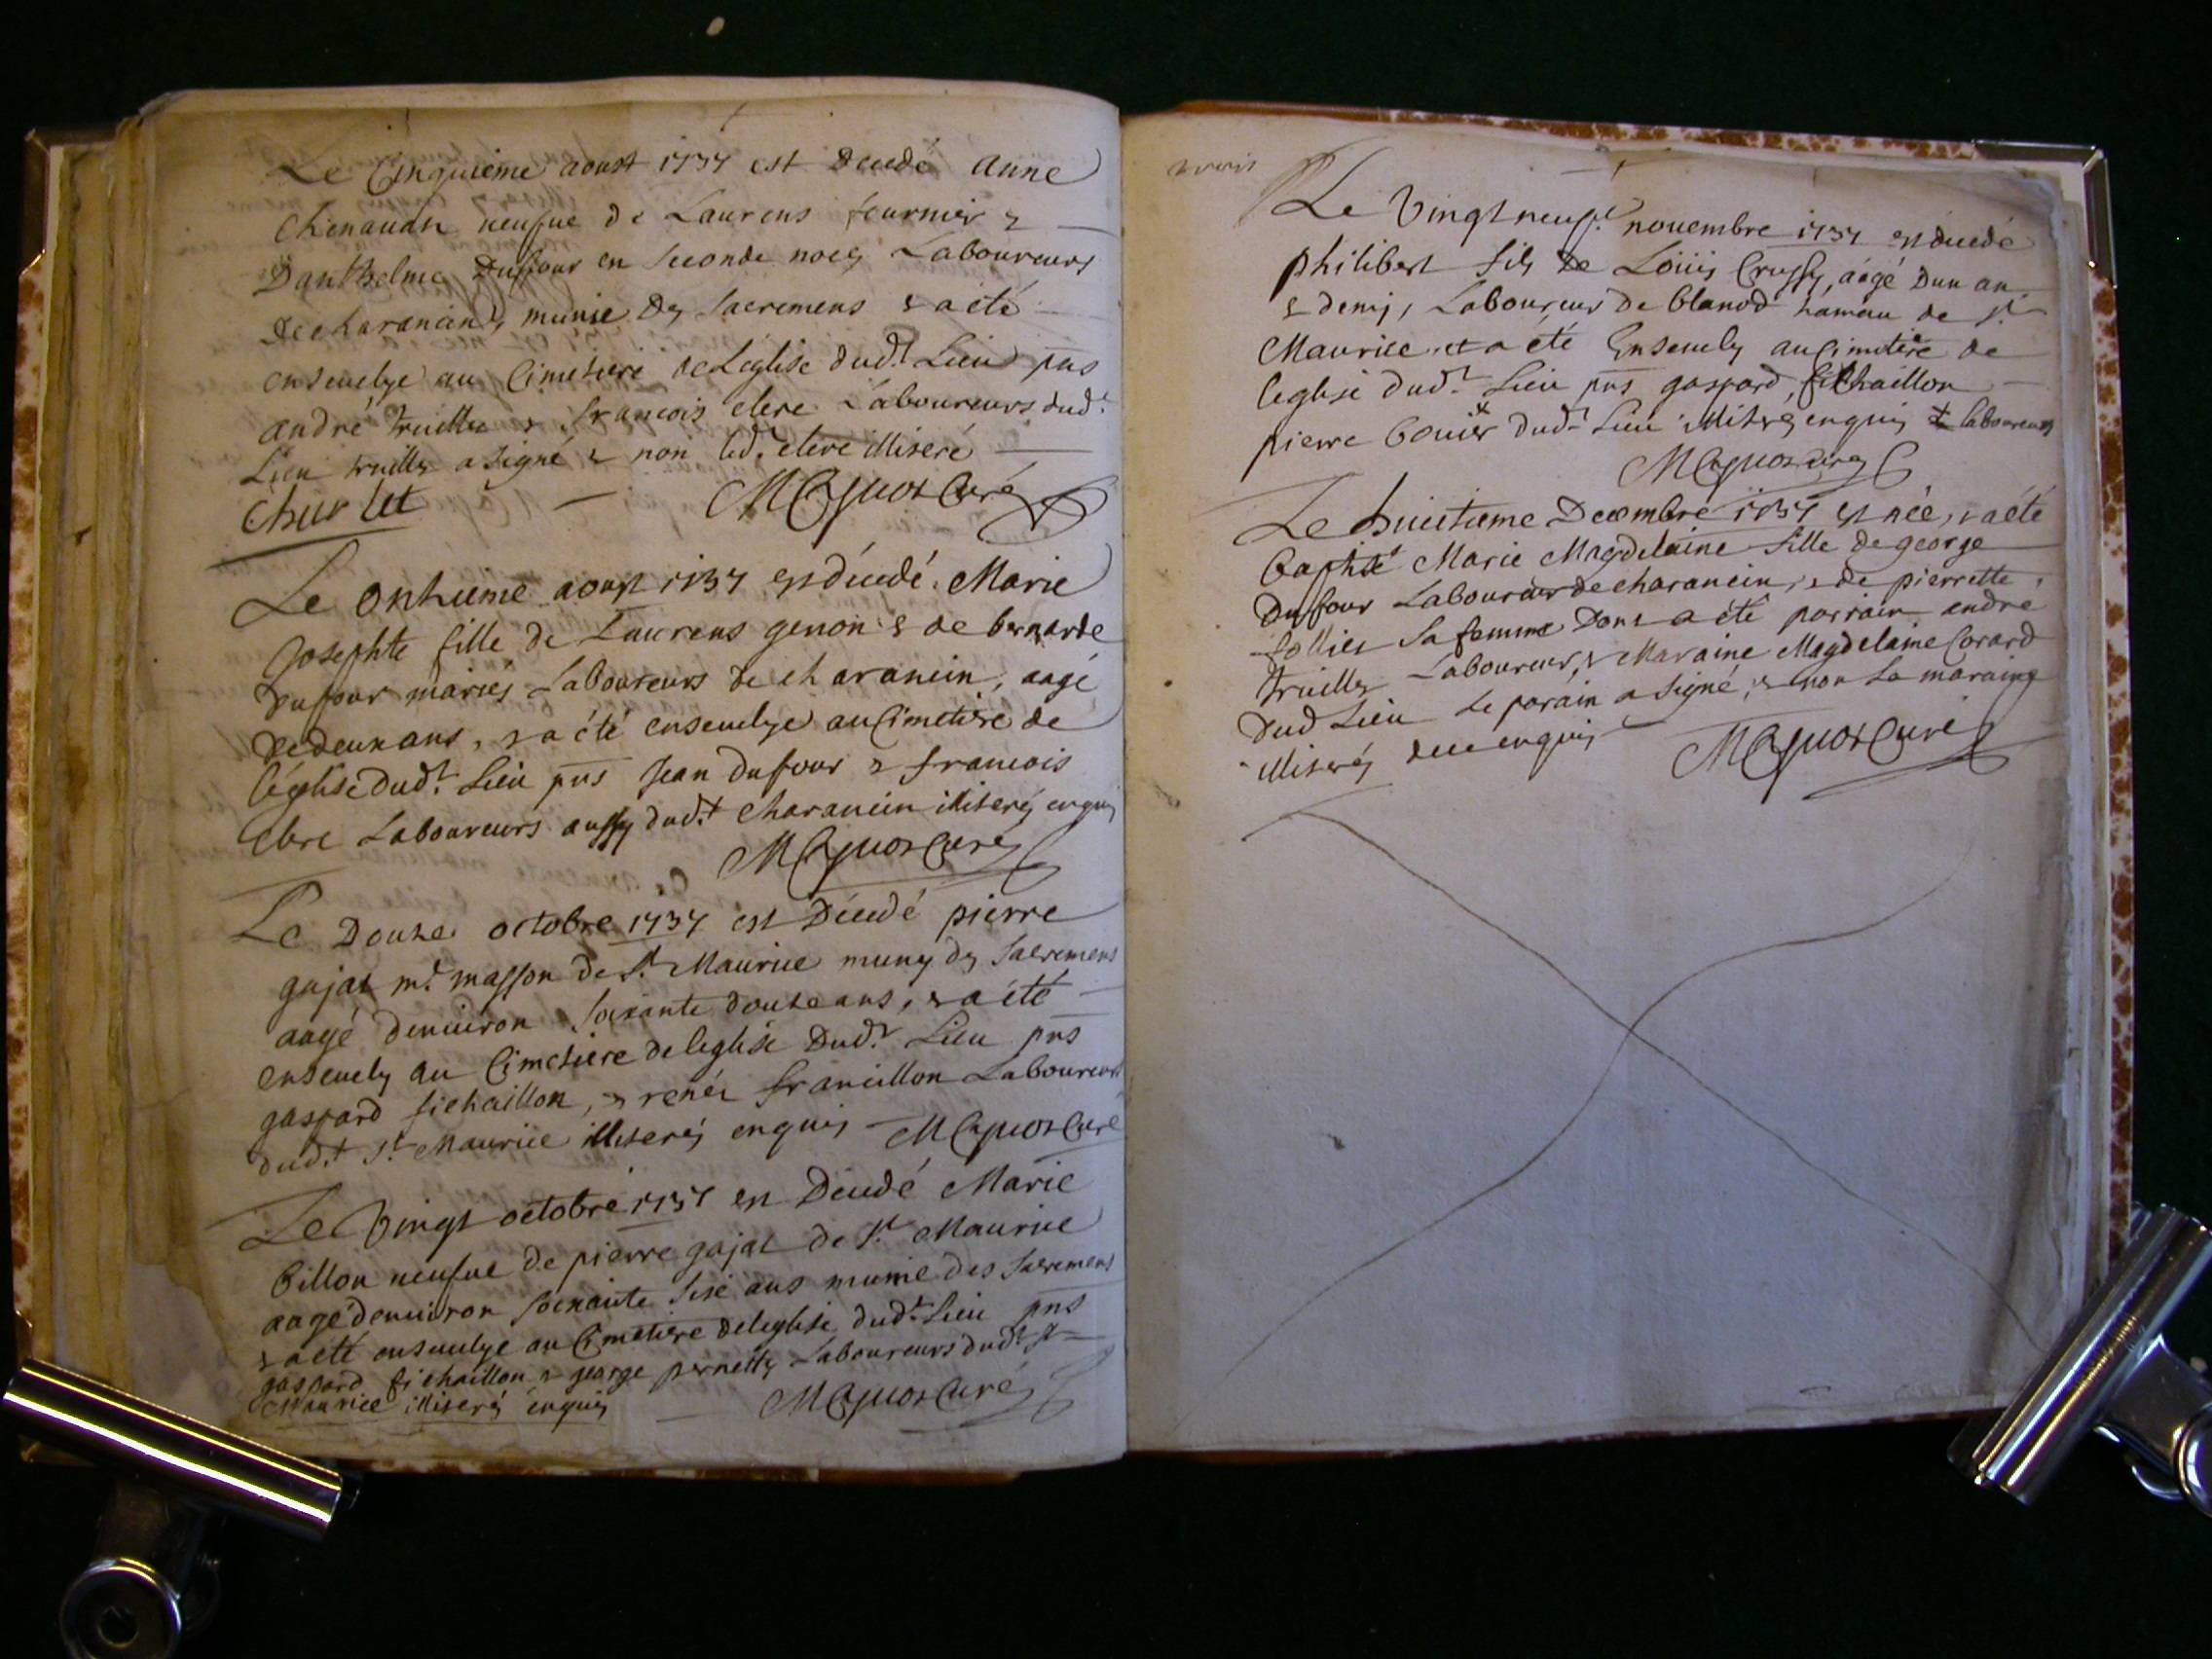 Le Cinquieme aoust 1737 est Decedé Anne
Chenauas neufue de Laurens fournier &
Danthelme Duffour en seconde noces Laboureurs
De charancin, munie des sacremens & a eté
ensevelye au Cimetiere de L'église dud.t Lieu pns
andré truilles & francois clere Laboureurs dud.t
Lieu truilles a signé & non led. clere illiseré
MCayuos Curé
Le onzieme aoust 1737 est décedé Marie
Josephte fille de Laurens genon & de bernarde
Dufour mariés Laboureurs de charancin, aagé
de deux ans, & a été ensevelye au Cimetiere de
l'église dud.t Lieu pns Jean dufour & francois
Clere Laboureurs aussy dud.t charancin illiserés enquis
MCayuos Curé
Le Douze octobre 1737 est Décedé pierre
gojat m.e masson de S.t Maurice muny des sacremens
aagé denviron soixante douze ans, & a été
ensevely au Cimetiere de l'eglise Dud.t Lieu pns
gaspard fichaillon, & renéz francillon Laboureurs
dud.t S.t Maurice illiserés enquis MCayuos Curé
Le Vingt octobre 1737 est Decedé Marie
Billon neufue de pierre gojat de S.t Maurice
aagé denviron soixante sise ans munie des sacremens
& a eté ensevelye au Cimetiere de leglise dud.t Lieu pns
gaspard fichaillon & george pernetty Laboureurs dud.t S.t
Maurice illiserés enquis MCayuos Curé
Le Vingt neuf.e novembre 1737 est decedé
philibert fils de Loüis Crussy, aagé dun an
& demy, Laboureur de blanod hameau de S.t
Maurice, et a été Ensevely au Cimitiere de
leglise dud.t Lieu pns gaspard fichaillon
pierre bonier dud.t Lieu illiserés enquis ± laboureurs
MCayuos Curé
Le huictieme Decembre 1737 est née, & a été
Baptisé Marie Magdelaine fille de george
Dufour Laboureur de charancin, & de pierrette
follier sa femme Dont a été parrain andré
truilles Laboureur, & Maraine Magdelaine Corard
Dud Lieu Le parain a signé, & non La maraine
illiserés de ce enquis MCayuos Curé